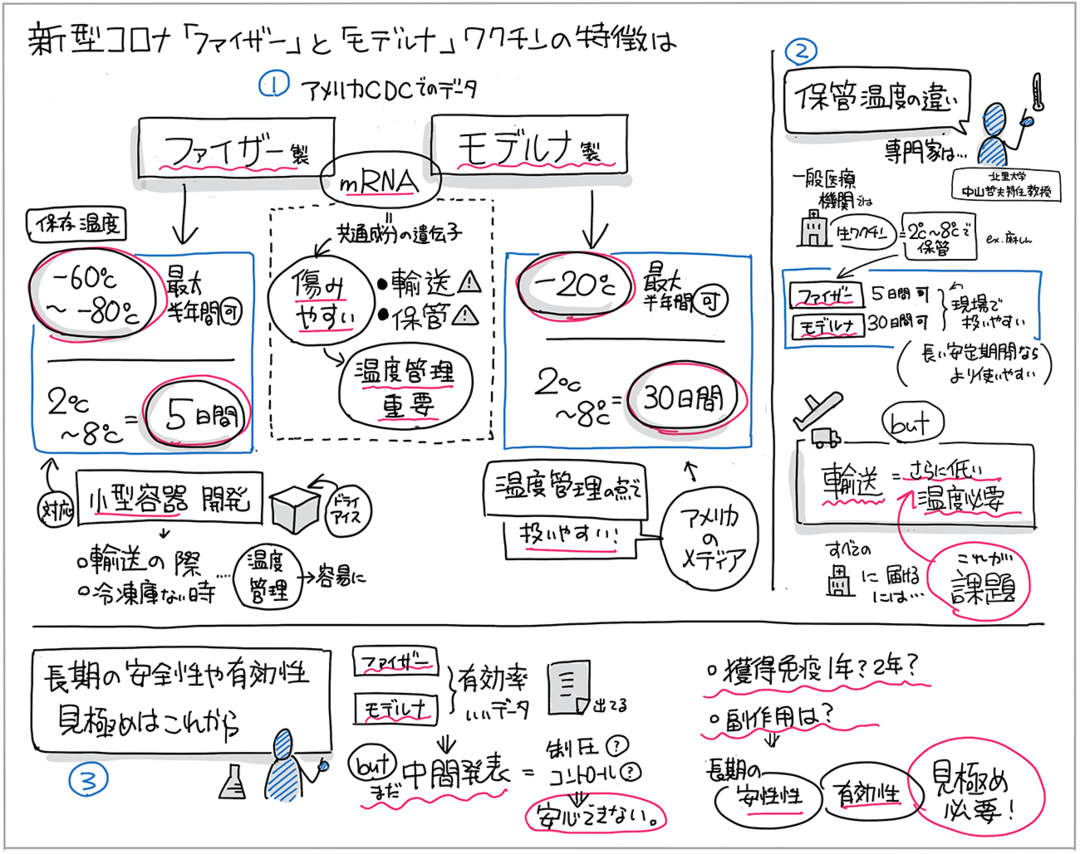 新型コロナ「ファイザー」と「モデルナ」ワクチンの特徴は
① アメリカCDCでのデータ
ファイザー製
モデルナ製
mRNA
=
共通成分の遺伝子
傷み
やすい
●輸送⚠
●保管⚠
温度管理
重要
保存温度
-60℃
～-80℃
最大
半年間可
2℃
～8℃
= 5日間
-20℃
最大
半年間可
2℃
～8℃
= 30日間
対応
小型容器 開発
ドライ
アイス
○輸送の際
○冷凍庫ない時
…
温度
管理
→容易に
温度管理の点で
扱いやすい!
アメリカ
の
メディア
②
保管温度の違い
専門家は…
北里大学
中山哲夫特任教授
一般医療
機関では
生ワクチン
=2℃～8℃で
保管
ex.麻しん
ファイザー 5日間可
モデルナ 30日間可
現場で
扱いやすい
(長い安定期間なら
より使いやすい)
but
輸送=さらに低い
温度必要
すべての
に届ける
には…
これが
課題
長期の安全性や有効性
見極めはこれから
③
ファイザー
モデルナ
有効率
いいデータ
出てる
but
まだ中間発表=
制圧?
コントロール?
安心できない。
○獲得免疫1年?2年?
○副作用は?
長期の
安性性
有効性
見極め
必要!